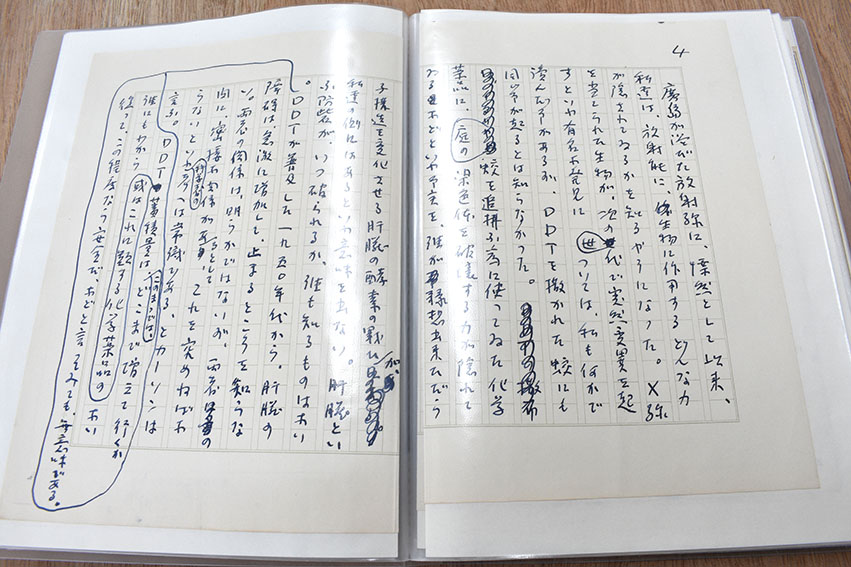 4
廣島が浴びた放射線に、慄然として以来、
私達は、放射能に、生物に作用するどんな力
が隠されてゐるかを知るやうになった。X線
を当てられた生物が、次の世代で突然変異を起
すといふ有名な発見については、私も何かで
読んだ事があるが、DDTを撒かれた蚊にも
同じ事が起るとは知らなかった。
庭の蚊を追拂ふ為に使ってゐた化学
薬品に、染色体を破壊する力が隠れて
ゐるなどといふ事を、誰が予想出来ただらう
子構造を変化させる肝臓の酵素の戦ひが、
私達の側にはあるといふ意味を出ない。肝臓とい
ふ防禦が、いつ破られるか、誰も知るものはない
。DDTが普及した一九五〇年代から、肝臓の
障碍は急激に増加して、止まるところを知らな
い。両者の関係は、明らかではないが、両者の
間に、密接な関係が るとして これを究めねばな
らないといふ科学者の考へは常識である、とカーソンは
言ふ。DDT 蓄積量は、このままでは、どこまで増えて行くか
誰にもわからない 或はこれに類する化学薬品の
従って、この程度なら安全だ、などと言ってみても、無意味である。